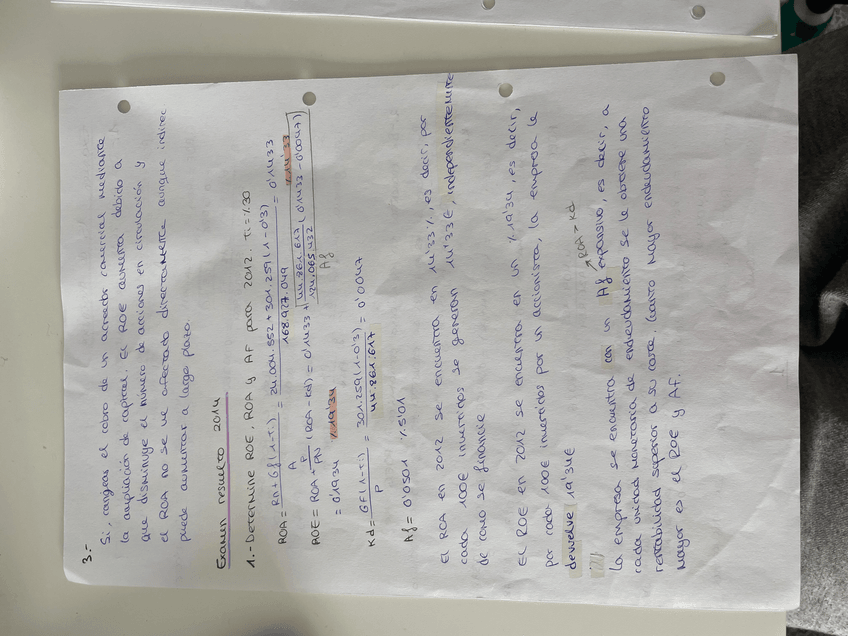 3.-
Si, canjeas el cobro de un acreedor comercial mediante
la ampliación de capital. El ROE aumenta debido a
que disminuye el número de acciones en circulación y
el ROA no se ve afectado directamente aunque indirec
puede aumentar a largo plazo.
Examen resuelto 2014
1.- Determine ROE, ROA y AF para 2012. Ti=%30
ROA = Rn + Gf (1-Ti) / A = 24.004.552 + 301.259 (1-0'3) / 168.927.049 = 0'1433
%14'33
ROE = ROA + P/PN (ROA - Kd) = 0'1433 + 44.861.617 / 124.065.432 (0'1433 - 0'0047)
= 0'1934 %19'34 Af
Kd = GF (1-Ti) / P = 301.259 (1-0'3) / 44.861.617 = 0'0047
Af = 0'0501 %5'01
El ROA en 2012 se encuentra en 14'33%, es decir, por
cada 100€ invertidos se generan 14'33€, independientemente
de como se financie
El ROE en 2012 se encuentra en un %19'34, es decir,
por cada 100€ invertidos por un accionista, la empresa le
devuelve 19'34€
ROA > Kd
La empresa se encuentra con un Af expansivo, es decir, a
cada unidad monetaria de endeudamiento se le obtiene una
rentabilidad superior a su coste. Cuanto mayor endeudamiento
mayor es el ROE y AF.